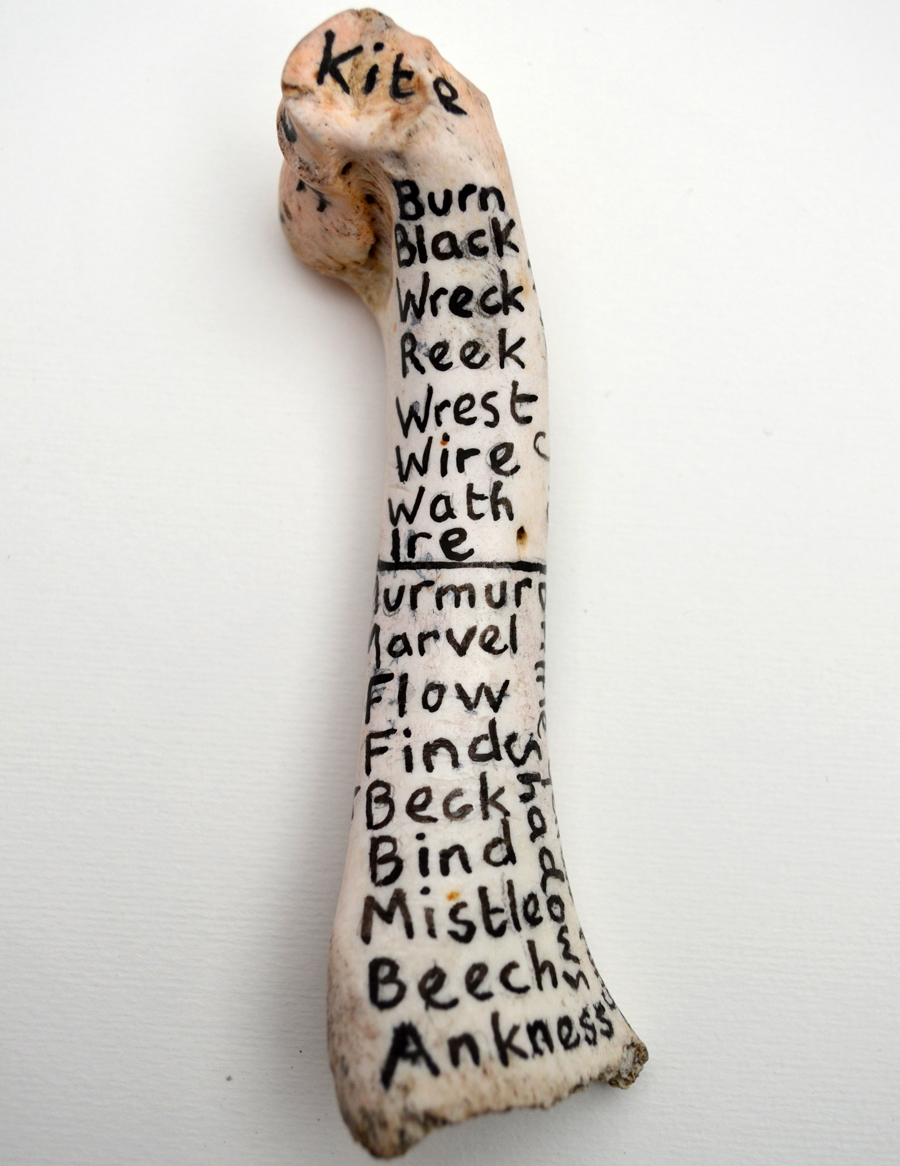 Kite
Burn
Black
Wreck
Reek
Wrest
Wire
Wath
Ire
urmur
Marvel
Flow
Find
Beck
Bind
Mistle
Beech
Ankness
Shadows